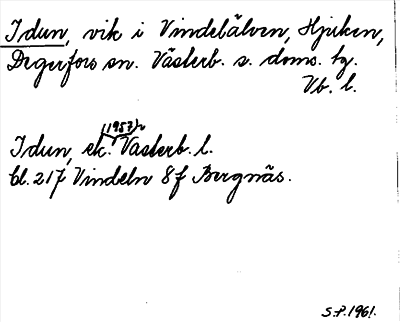 Idun, vik i Vindelälven, Hjuken,
Degerfors sn. Västerb. s. doms. hg.
Vb. l.
(1957)
Idun, ek. Västerb. l.
bl. 217 Vindeln 8f Bergnäs.
S.P. 1961.